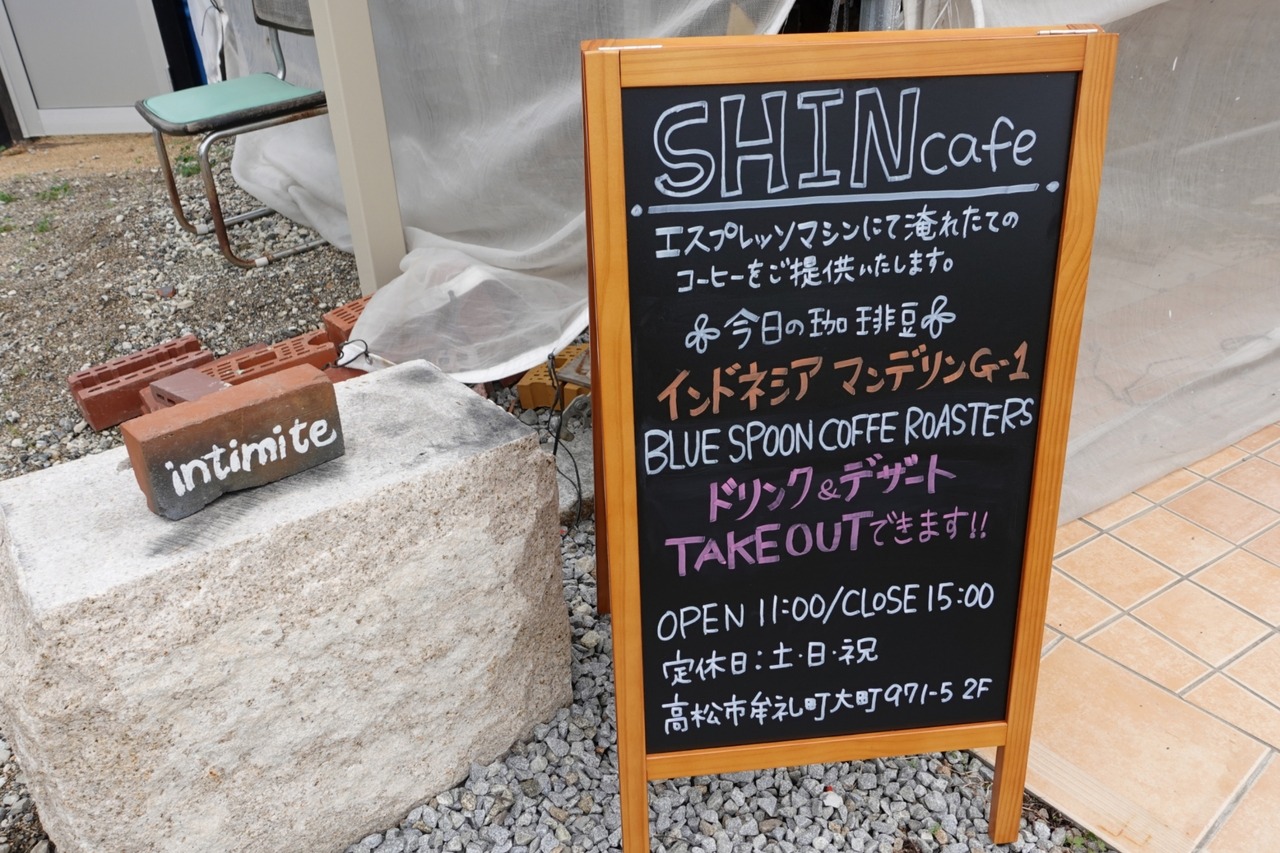 SHIN cafe
エスプレッソマシンにて淹れたての
コーヒーをご提供いたします。
今日の珈琲豆
インドネシア マンデリンG-1
BLUE SPOON COFFE ROASTERS
ドリンク&デザート
TAKE OUTできます!!
OPEN 11:00/CLOSE 15:00
定休日:土・日・祝
高松市牟礼町大町971-5 2F
intimite